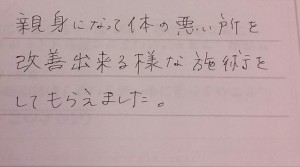 親身になって体の悪い所を
改善出来る様な施術を
してもらえました。